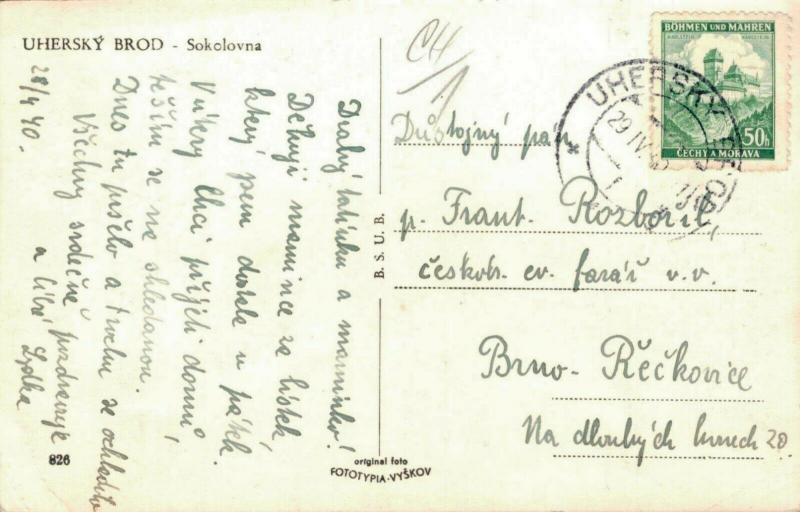 UHERSKÝ BROD - Sokolovna
28/4 40.
Drahý tatínku a maminko!
Děkuji mamince za lístek
který jsem dostala v pátek.
V úterý chci přijeti domů,
těším se na shledanou.
Dnes tu pršelo a trochu se ochladilo
Všechny srdečně pozdravuje
a líbá Lydka
826
B. S. U. B.
original foto
FOTOTYPIA-VYŠKOV
CH/1
BÖHMEN UND MÄHREN
50h
ČECHY A MORAVA
UHERSKÝ BROD
29 IV 40
Důstojný pan
p. Frant. Rozbořil,
českobr. ev. farář v.v.
Brno-Řečkovice
Na dlouhých kusech 20